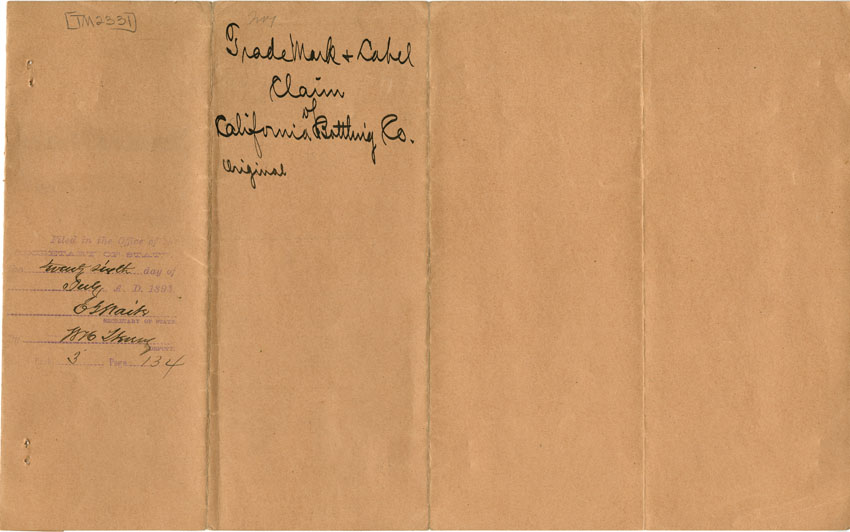 TM2331
Trade Mark & Label
Claim
of
California Bottling Co.
Original
Filed in the Office of the
SECRETARY OF STATE,
twenty sixth day of
July A. D. 1893
SECRETARY OF STATE
DEPUTY
3 Page 134